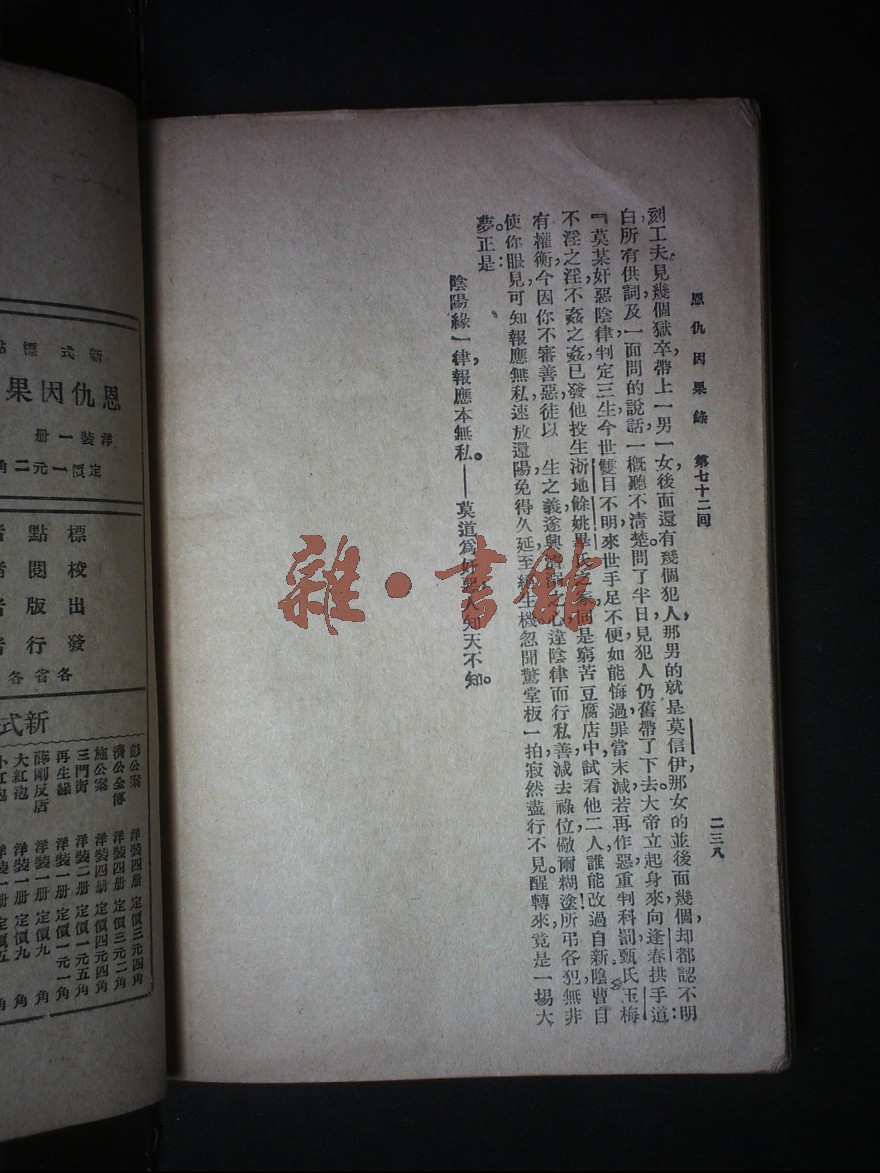 恩仇因果錄　第七十二回　二三八
刻工夫，見幾個獄卒帶上一男一女，後面還有幾個犯人，那男的就是莫信伊，那女的並後面幾個，却都認不明
白，所有供詞及一面問的說話，一概聽不清楚。問了半日，見犯人仍舊帶了下去。大帝立起身來，向逢春拱手道：
『莫某奸惡，陰律判定三生，今世雙目不明，來世手足不便，如能悔過，罪當末減，若再作惡，重判科罰。甄氏玉梅，
不淫之淫，不姦之姦，已發他投生浙地餘姚畢氏之
同是窮苦豆腐店中，試看他二人誰能改過自新，陰曹自
有權衡。今因你不審善惡，徒以　生之義，遂興濟
之心，違陰律而行私善，減去祿位，儆爾糊塗！所弔各犯，無非
使你眼見，可知報應無私，速放還陽，免得久延，至
生機。忽聞驚堂板一拍，寂然盡行不見。醒轉來，竟是一場大
夢。正是：
陰陽緣一律，報應本無私。——莫道爲奸惡，人知天不知。
雜·書館
新式標點
恩仇因果
洋裝一册
定價一元二角
標點者
校閱者
出版者
發行者
各省各
新式
彭公案　洋裝四册　定價三元四角
濟公全傳　洋裝四册　定價三元二角
施公案　洋裝四册　定價四元四角
三門街　洋裝二册　定價一元五角
再生緣　洋裝一册　定價一元一角
薛剛反唐　洋裝一册　定價九角
大紅袍　洋裝一册　定價九角
小紅袍　洋裝一册　定價五角